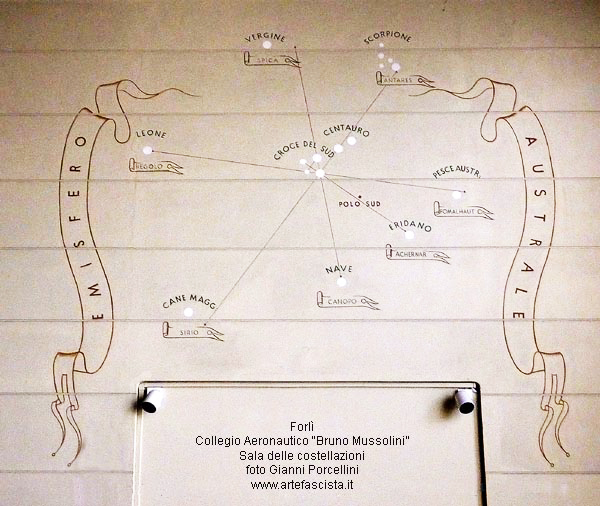 VERGINE
SPICA
SCORPIONE
ANTARES
CENTAURO
CROCE DEL SUD
LEONE
REGOLO
PESCE AUSTR.
FOMALHAUT
POLO SUD
ERIDANO
ACHERNAR
NAVE
CANOPO
CANE MAGG.
SIRIO
EMISFERO
AUSTRALE
Forlì
Collegio Aeronautico "Bruno Mussolini"
Sala delle costellazioni
foto Gianni Porcellini
www.artefascista.it